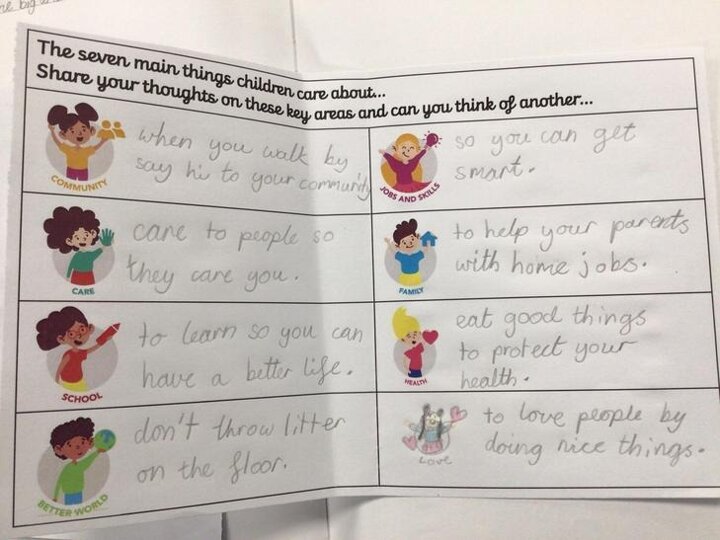 The seven main things children care about...
Share your thoughts on these key areas and can you think of another...
COMMUNITY
when you walk by
say hi to your community
JOBS AND SKILLS
so you can get
smart.
CARE
care to people so
they care you.
FAMILY
to help your parents
with home jobs.
SCHOOL
to learn so you can
have a better life.
HEALTH
eat good things
to protect your
health.
BETTER WORLD
don't throw litter
on the floor.
Love
to love people by
doing nice things.